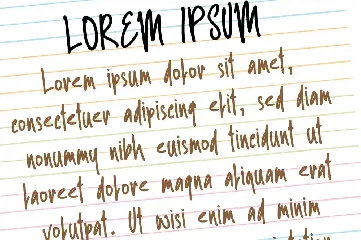 LOREM IPSUM
Lorem ipsum dolor sit amet,
consectetuer adipiscing elit, sed diam
nonummy nibh euismod tincidunt ut
laoreet dolore magna aliquam erat
volutpat. Ut wisi enim ad minim